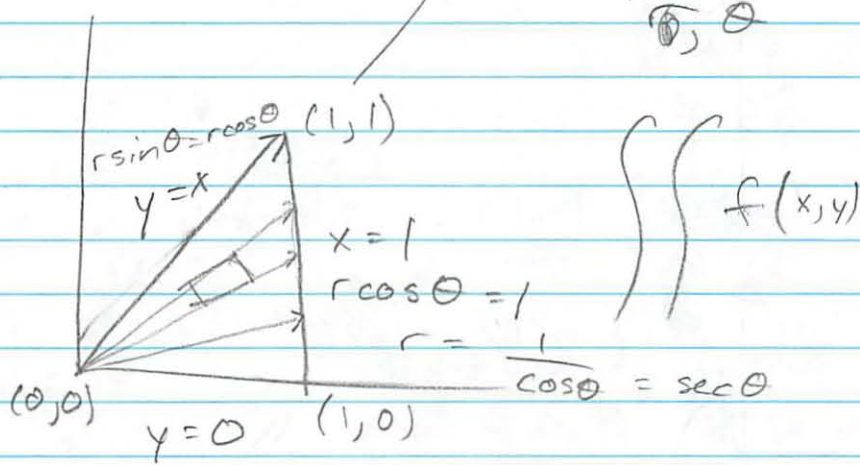 θ
r sin θ = r cos θ (1,1)
y = x
∫∫ f(x,y)
x = 1
r cos θ = 1
r = 1/cos θ = sec θ
(0,0)
y = 0
(1,0)